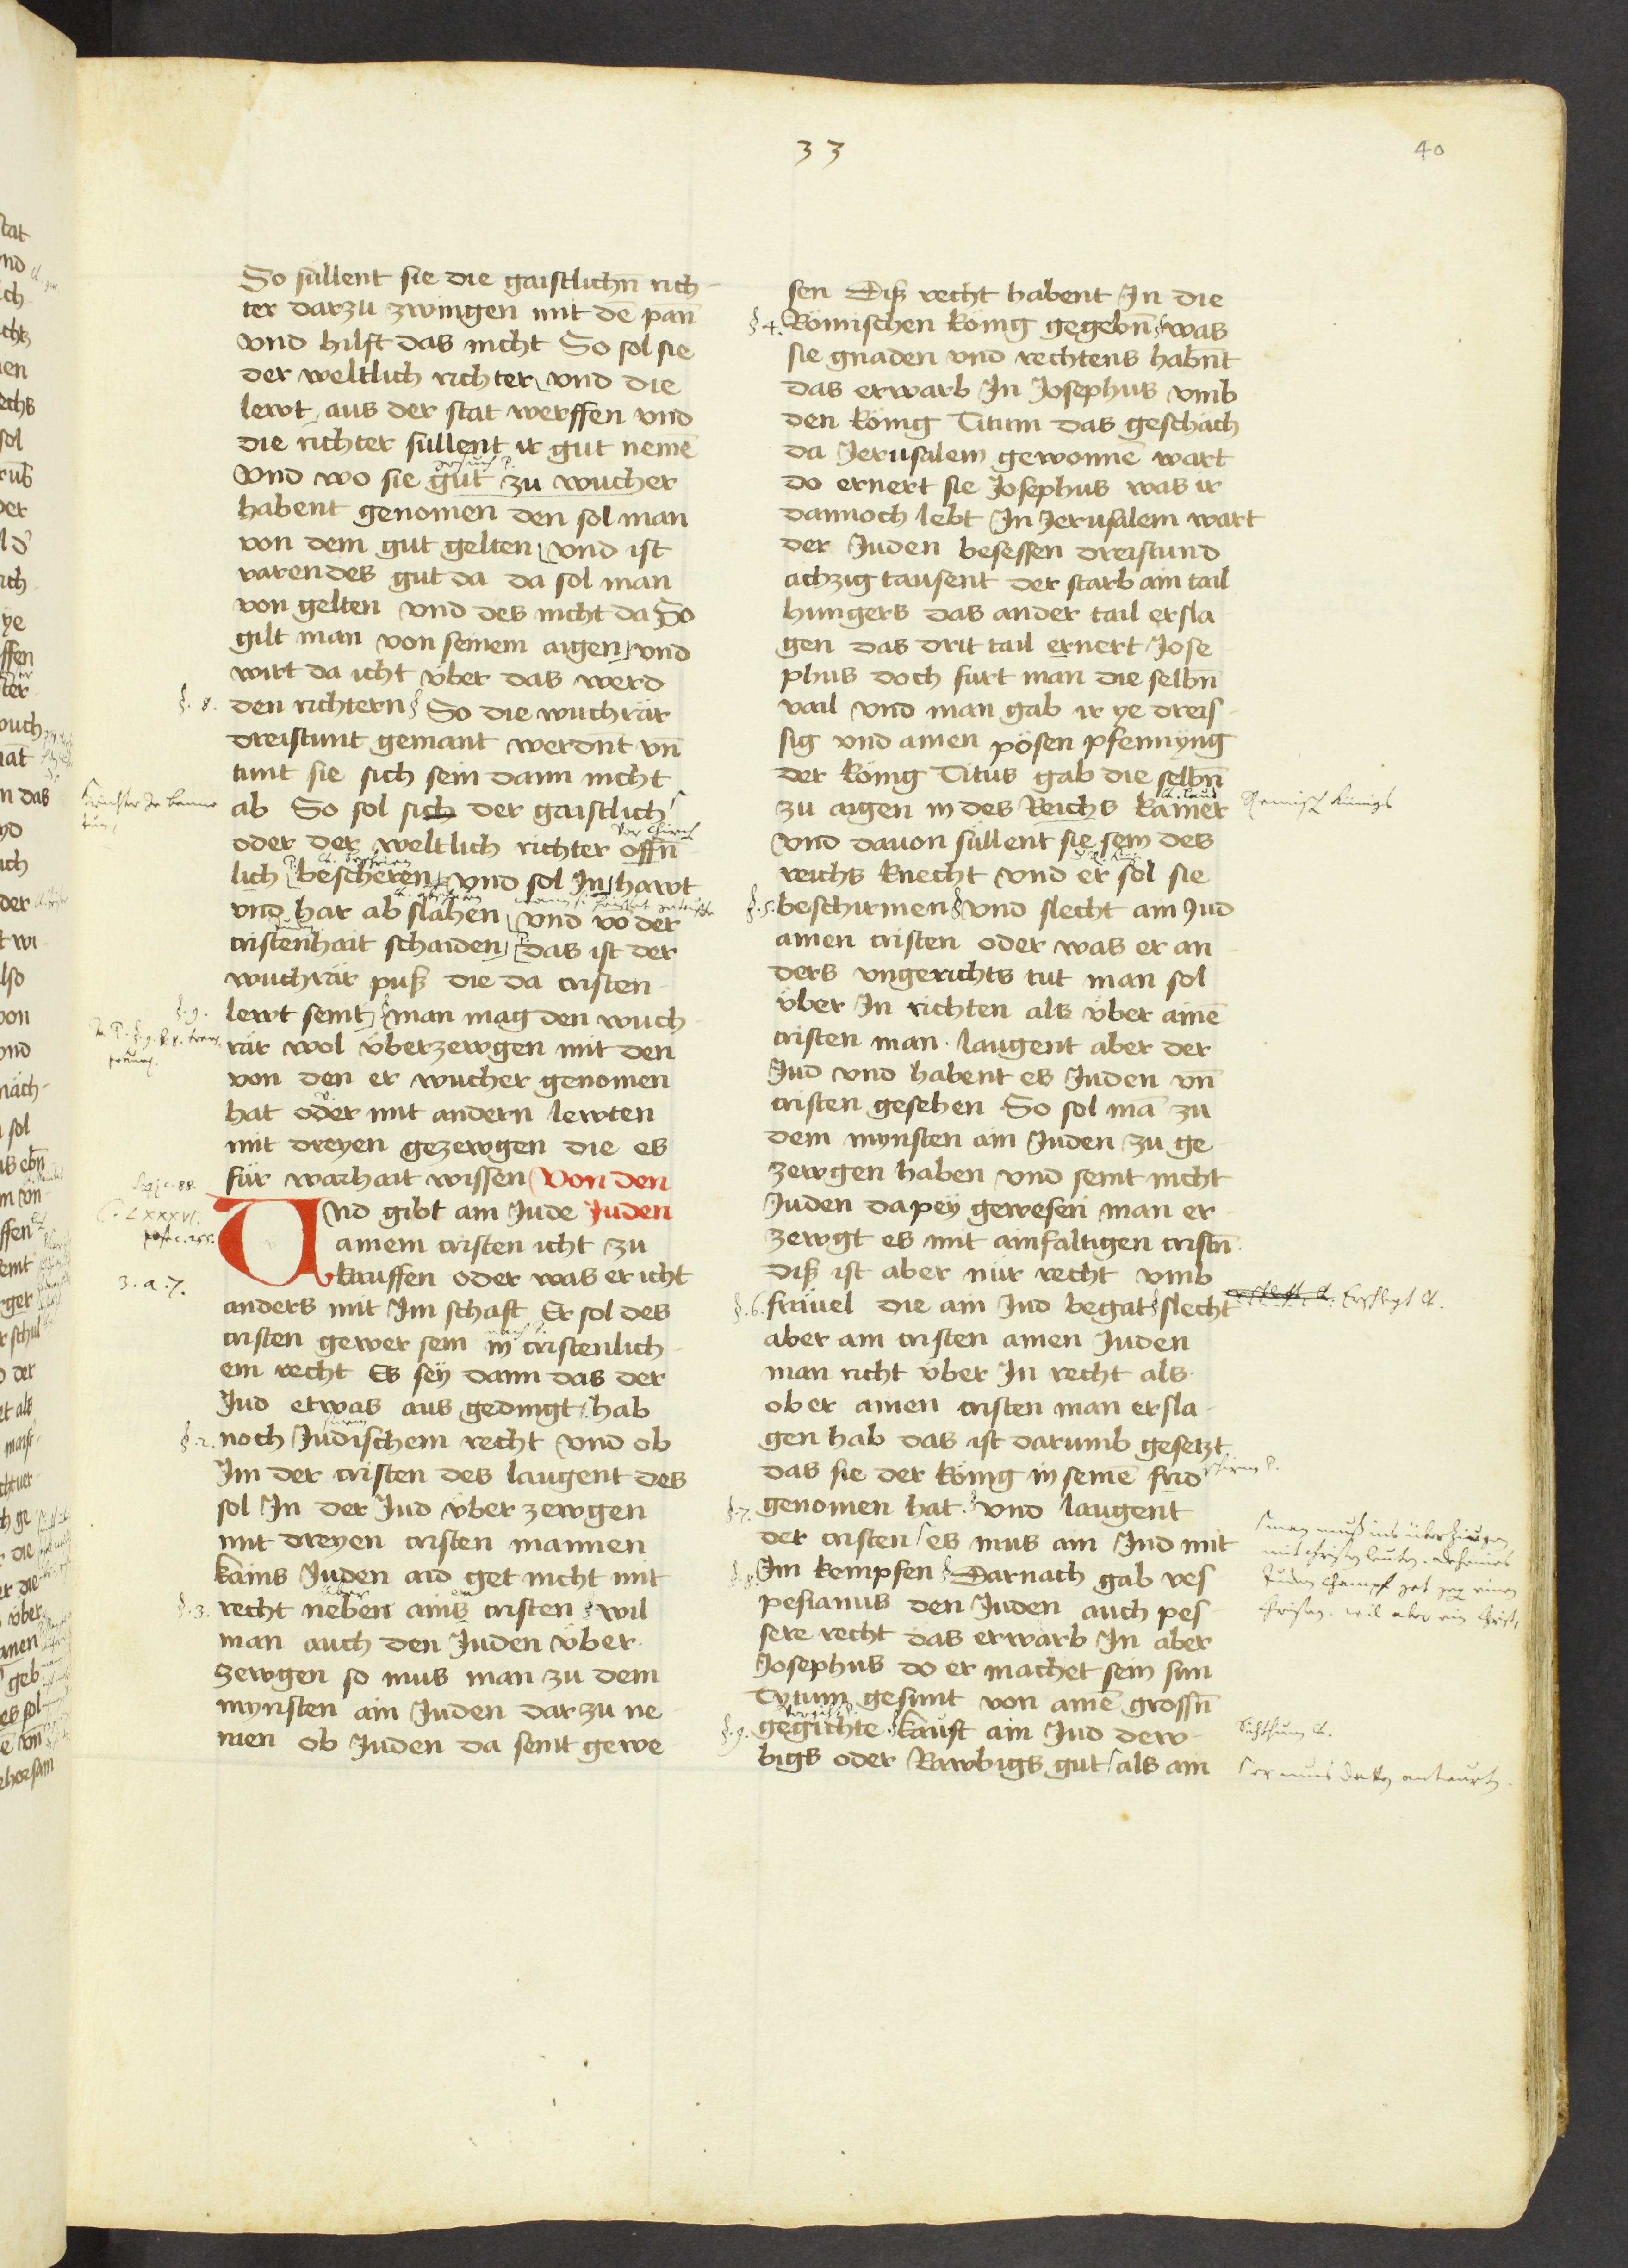 33
40
So süllent sie die gaistlichn̄ rich-
ter darzu zwingen mit dē pān
vnd hilft das nicht So sol sie
der weltlich richter vnd die
lewt aus der stat werffen vnd
die richter süllent ir gut nemē
Vnd wo sie gut zu wucher
habent genomen den sol man
von dem gut gelten vnd ist
varendes gut da da sol man
von gelten vnd des nicht da So
gilt man von seinem aigen vnd
wirt da icht über das werd
§. 8. den richtern So die wuchrär
dreistunt gemant werdn̄t vn̄
tunt sie sich sein dann nicht
ab So sol sich der gaistlich
oder der weltlich richter offn̄
lich bescheren vnd sol In hawt
vnd har ab slahen vnd vō der
cristenhait schaiden das ist der
wuchrär puß die da cristen-
§. 9. lewt seint man mag den wuch-
rär wol überzewgen mit den
von den er wucher genomen
hat oder mit andern lewten
mit dreyen gezewgen die es
für warhait wissen Von den
Vnd gibt ain Jude Juden
ainem cristen icht zu
kauffen oder was er icht
anders mit Im schaft Er sol des
cristen gewer sein in cristenlich-
em recht Es sey dann das der
Jud etwas aus gedingt hab
§. 2. noch Judischem recht vnd ob
Im der cristen des laugent des
sol In der Jud über zewgen
mit dreyen cristen mannen
kains Juden aid get nicht mit
§. 3. recht neben ains cristen wil
man auch den Juden über-
zewgen so mus man zu dem
mynsten ain Juden dar zu ne-
men ob Juden da seint gewe-
C. LXXXVI.
3. a. 7.
sen Diß recht habent In die
§ 4. Römischen König gegebn̄ was
sie gnaden vnd rechtens habn̄t
das erwarb In Josephus vmb
den König Titum das geschach
da Jerusalem gewonnē wart
do ernert sie Josephus was ir
dannoch lebt In Jerusalem wart
der Juden besessen dreistund
achzig tausent der starb ain tail
hungers das ander tail ersla-
gen das drit tail ernert Jose-
phus doch furt man die selbn̄
vail vnd man gab ir ye dreis-
sig vmb ainen pösen pfennyng
der König Titus gab die selbn̄
zu aigen in des Reichs Kamer
Vnd dauon süllent sie sein des
reichs knecht vnd er sol sie
§. 5. beschirmen Vnd slecht ain Jud
ainen cristen oder was er an-
ders vngerichts tut man sol
über In richten als über ainē
cristen man. laugent aber der
Jud vnd habent es Juden vn̄
cristen gesehen So sol mā zu
dem mynsten ain Juden zu ge-
zewgen haben vnd seint nicht
Juden dapey gewesen man er-
zewgt es mit ainfaltigen cristn̄
diß ist aber nür recht vmb
§. 6. fräuel die ain Jud begat slecht
aber ain cristen ainen Juden
man richt über In recht als
ob er ainen cristen man ersla-
gen hab das ist darumb gesetzt
das sie der König in seinē frid
§. 7. genomen hat. vnd laugent
der cristen es mus ain Jud mit
§. 8. Im kempfen Darnach gab ves-
pesianus den Juden auch pes-
sere recht das erwarb In aber
Josephus do er machet sein sun
Tytum gesunt von ainē grossn̄
§. 9. gegichte kauft ain Jud dew-
bigs oder Rawbigs gut als ain